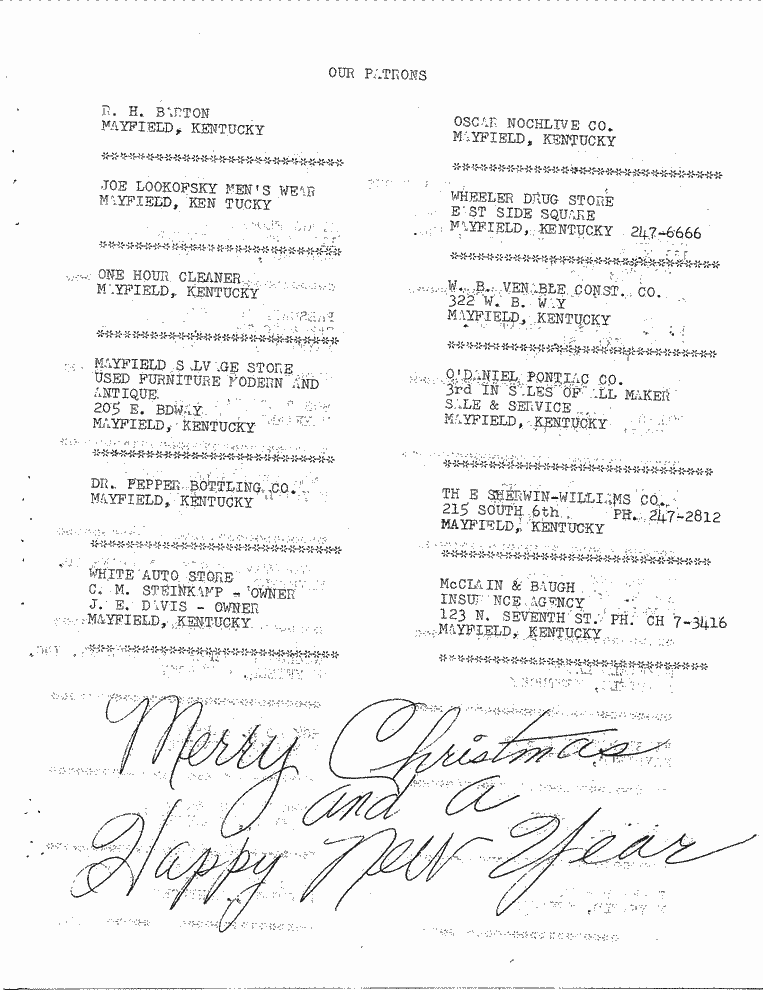 OUR PATRONS
R. H. BARTON
MAYFIELD, KENTUCKY
**************************
JOE LOOKOFSKY MEN'S WEAR
MAYFIELD, KEN TUCKY
**************************
ONE HOUR CLEANER
MAYFIELD, KENTUCKY
**************************
MAYFIELD SALVAGE STORE
USED FURNITURE MODERN AND
ANTIQUE
205 E. BDWAY
MAYFIELD, KENTUCKY
**************************
DR. PEPPER BOTTLING CO.
MAYFIELD, KENTUCKY
**************************
WHITE AUTO STORE
C. M. STEINKAMP - OWNER
J. E. DAVIS - OWNER
MAYFIELD, KENTUCKY
**************************
OSCAR NOCHLIVE CO.
MAYFIELD, KENTUCKY
*****************************
WHEELER DRUG STORE
EAST SIDE SQUARE
MAYFIELD, KENTUCKY 247-6666
*****************************
W. B. VENABLE CONST. CO.
322 W. B. WAY
MAYFIELD, KENTUCKY
*****************************
O'DANIEL PONTIAC CO.
3rd IN SALES OF ALL MAKER
SALE & SERVICE
MAYFIELD, KENTUCKY
*****************************
TH E SHERWIN-WILLIAMS CO.
215 SOUTH 6th PH. 247-2812
MAYFIELD, KENTUCKY
*****************************
McCLAIN & BAUGH
INSURANCE AGENCY
123 N. SEVENTH ST. PH. CH 7-3416
MAYFIELD, KENTUCKY
*****************************
Merry Christmas
and a
Happy New Year